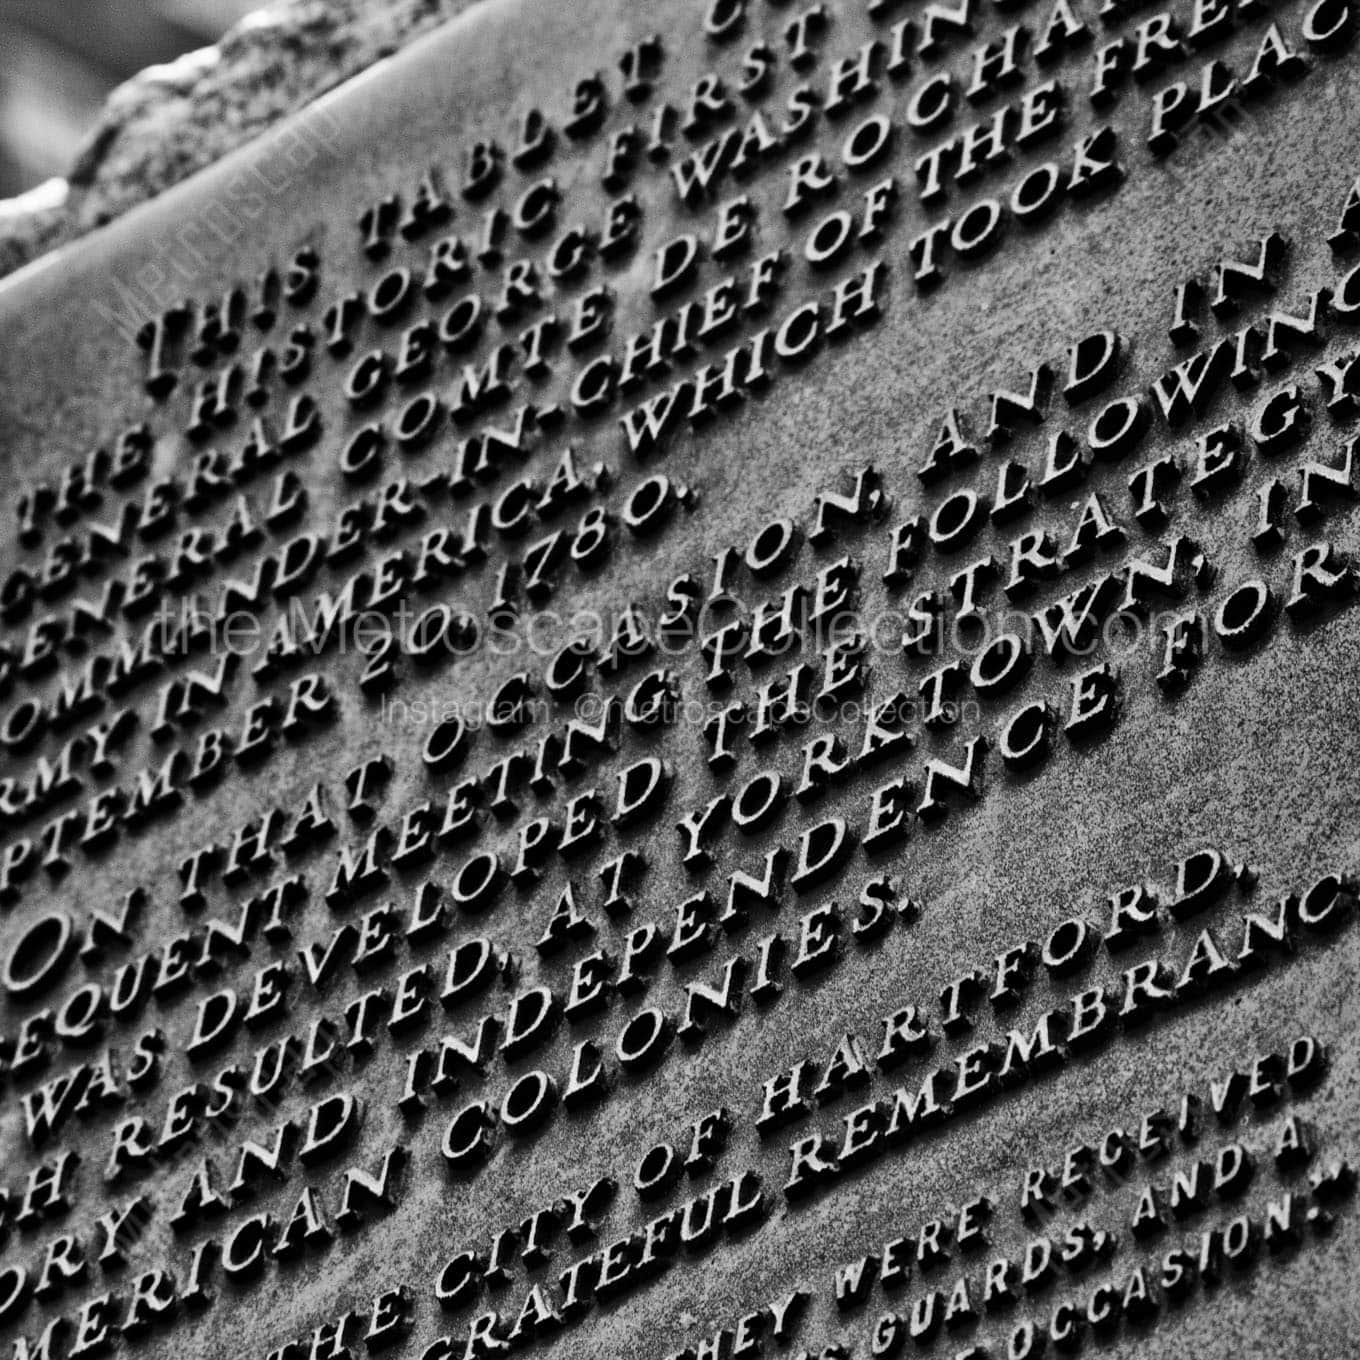 THIS TABLET
THE HISTORIC FIRST
GENERAL GEORGE WASHIN
GENERAL COMTE DE ROCHAM
COMMANDER-IN-CHIEF OF THE FRE
RMY IN AMERICA, WHICH TOOK PLAC
PTEMBER 20, 1780.
ON THAT OCCASION, AND IN A
SEQUENT MEETING THE FOLLOWING
WAS DEVELOPED THE STRATEGY
CH RESULTED, AT YORKTOWN, IN
ORY AND INDEPENDENCE FOR
MERICAN COLONIES.
THE CITY OF HARTFORD,
GRATEFUL REMEMBRANC
HEY WERE RECEIVED
GUARDS, AND A
OCCASION."
the MetroscapeCollection.com
Instagram: @metroscapeCollection
Metroscap